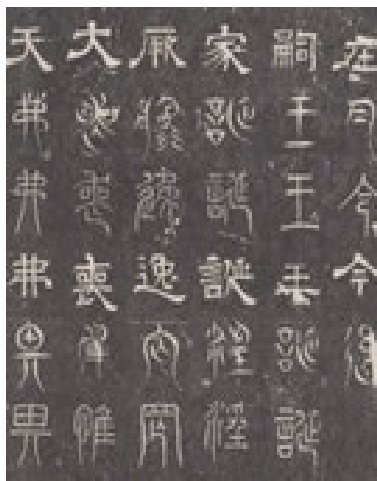 在今今今後
嗣王王王誕誕
家誕誕誕淫淫
厥逸逸逸罔罔
大喪喪喪惟惟
天弗弗弗畀畀